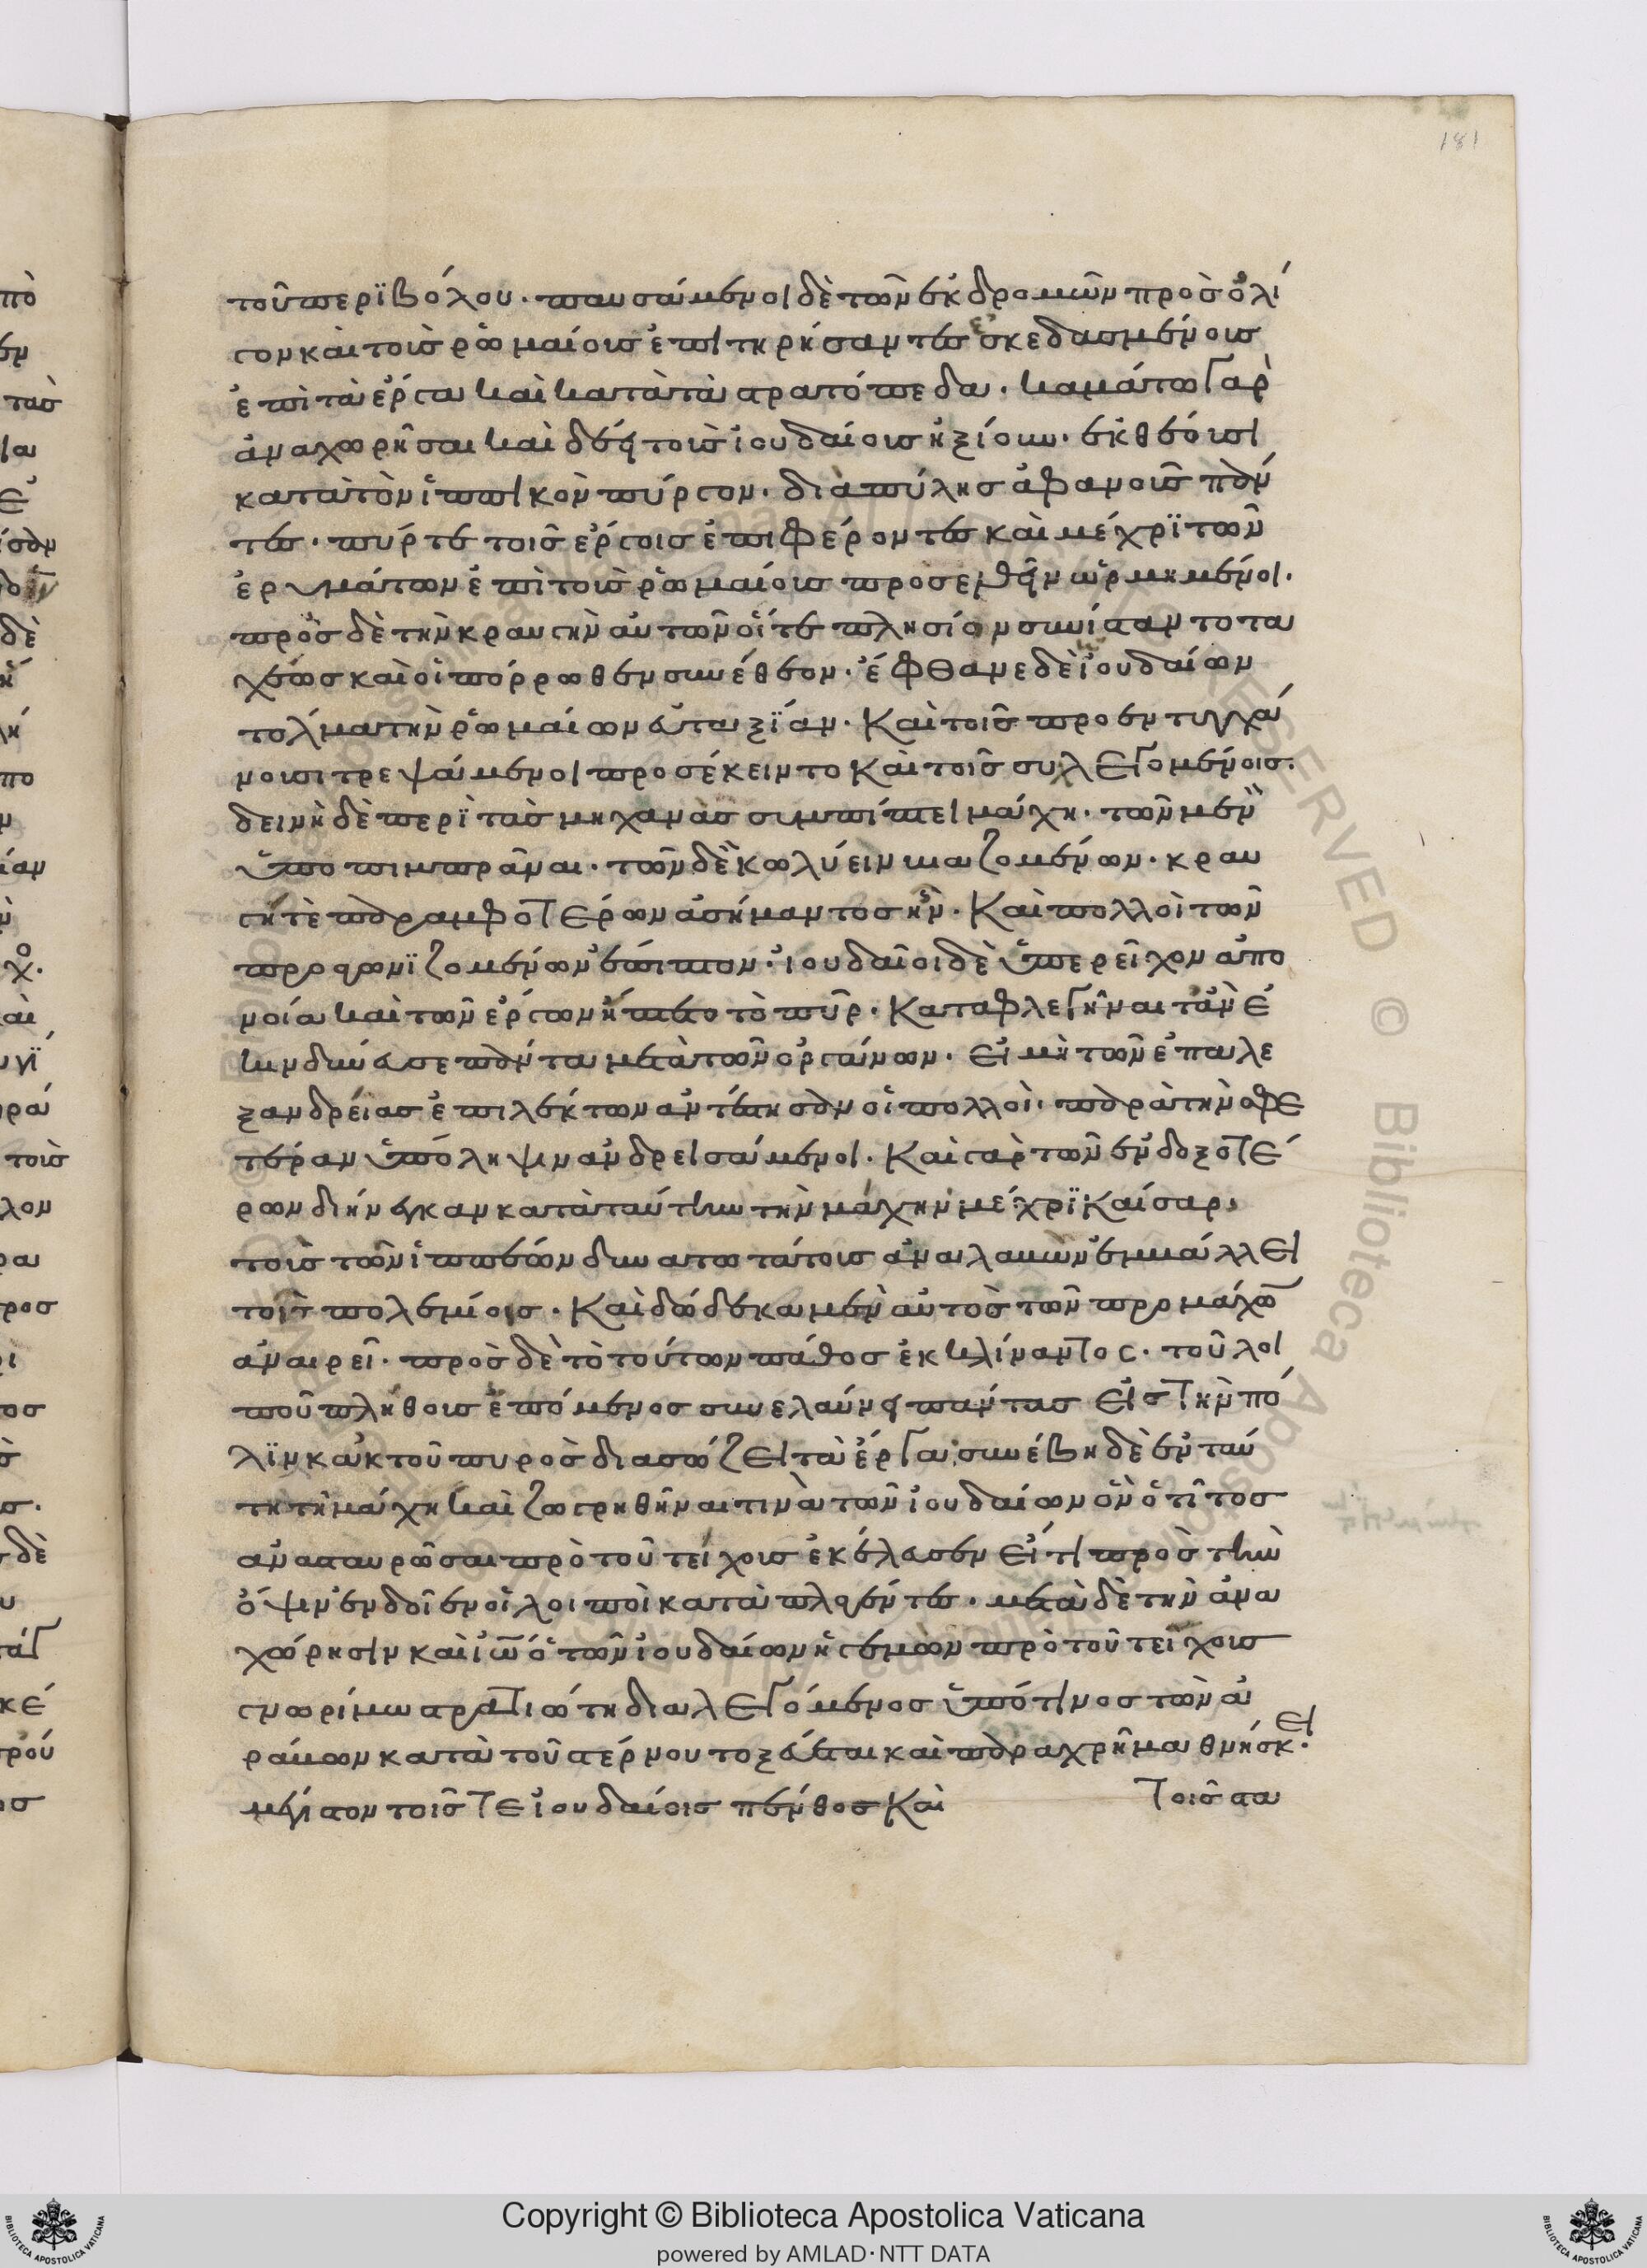 181
τοῦ περϊβόλου. παυσάμενοι δὲ τῶν ἐκδρομῶν πρὸσ ὀλί
γον καὶ τοῖσ ῥωμαίοισ ἐπιτηρήσαντεσ ἐσκεδασμένοισ
ἐπὶ τὰ ἔργα καὶ κατὰ τὰ στρατόπεδα. καμάτω γὰρ
ἀναχωρῆσαι καὶ δέει τοῖσ ἰουδαίοισ ἠξίουν. ἐκθέουσι
κατὰ τὸν ἱππικὸν πύργον. διὰ πύλησ ἀφανοῦσ πάν
τεσ. πῦρ τε τοῖσ ἔργοισ ἐπιφέροντεσ καὶ μέχρϊ τῶν
ἐρυμάτων ἐπὶ τοῖσ ῥωμαίοισ προσελθεῖν ὡρμημένοι.
πρὸσ δὲ τὴν κραυγὴν αὐτῶν οἵ τε πλησίον συνίσταντο τα
χέωσ καὶ οἱ πόρρωθεν συνέθεον. ἔφθανε δὲ ἰουδαίων
τόλμα τὴν ῥωμαίων εὐταξΐαν. Καὶ τοῖσ προεντυγχά
νουσι τρεψάμενοι προσέκειντο καὶ τοῖσ συλλεγομένοισ.
δεινὴ δὲ περῒ τὰσ μηχανὰσ συμπίπτει μάχη. τῶν μὲν
ὑποπιμπράναι. τῶν δὲ κωλύειν βιαζομένων. κραυ
γή τε παρ' ἀμφοτέρων ἀσήμαντοσ ἦν. Καὶ πολλοὶ τῶν
προαγωνϊζομένων ἔπιπτον. ἰουδαῖοι δὲ ὑπερεῖχον ἀπο
νοία καὶ τῶν ἔργων ἥπτετο τὸ πῦρ. Καταφλεγῆναι τ' ἂν ἐ
κινδύνευσε πάντα μετὰ τῶν ὀργάνων. εἰ μὴ τῶν ἐπ' ἀλε
ξανδρείασ ἐπιλέκτων ἀντέστησαν οἱ πολλοὶ. παρὰ τὴν σφε
τέραν ὑπόληψιν ἀνδρεισάμενοι. Καὶ γὰρ τῶν ἐνδοξοτέ
ρων διήνεγκαν κατὰ ταύτην τὴν μάχην μέχρϊ Καίσαρ,
τοὺσ τῶν ἱππέων δυνατωτάτουσ ἀναλαβὼν ἐμβάλλει
τοῖσ πολεμίοισ. Καὶ δώδεκα μὲν αὐτὸσ τῶν προμάχω̅
ἀναιρεῖ. πρὸσ δὲ τὸ τούτων πάθοσ ἐκκλίναντος. τοῦ λοι
ποῦ πλήθουσ ἑπόμενοσ συνελαύνει πάντασ εἰσ τὴν πό
λϊν κἀκ τοῦ πυρὸσ διασώζει τὰ ἔργα. συνέβη δὲ ἐν ταύ
τη τῆ μάχη καὶ ζωγρηθῆναι τινὰ τῶν ἰουδαίων ὃν ὁ τίτοσ
ἀνασταυρῶσαι πρὸ τοῦ τείχουσ ἐκέλευσεν εἴ τι πρὸσ τὴν
ὄψιν ἐνδοῖεν οἱ λοιποὶ καταπλαγέντεσ. μετὰ δὲ τὴν ἀνα
χώρησιν καὶ ἰω̅ ὁ τῶν ἰουδαίων ἡγεμὼν πρὸ τοῦ τείχουσ
γνωρίμω στρατιώτη διαλεγόμενοσ ὑπό τινοσ τῶν ἀ
ράβων κατὰ τοῦ στέρνου τοξεύεται καὶ παραχρῆμα θνήσκει.
μέγιστον τοῖσ τε ἰουδαίοισ πένθοσ καὶ τοῖσ στα
Copyright © Biblioteca Apostolica Vaticana
powered by AMLAD·NTT DATA